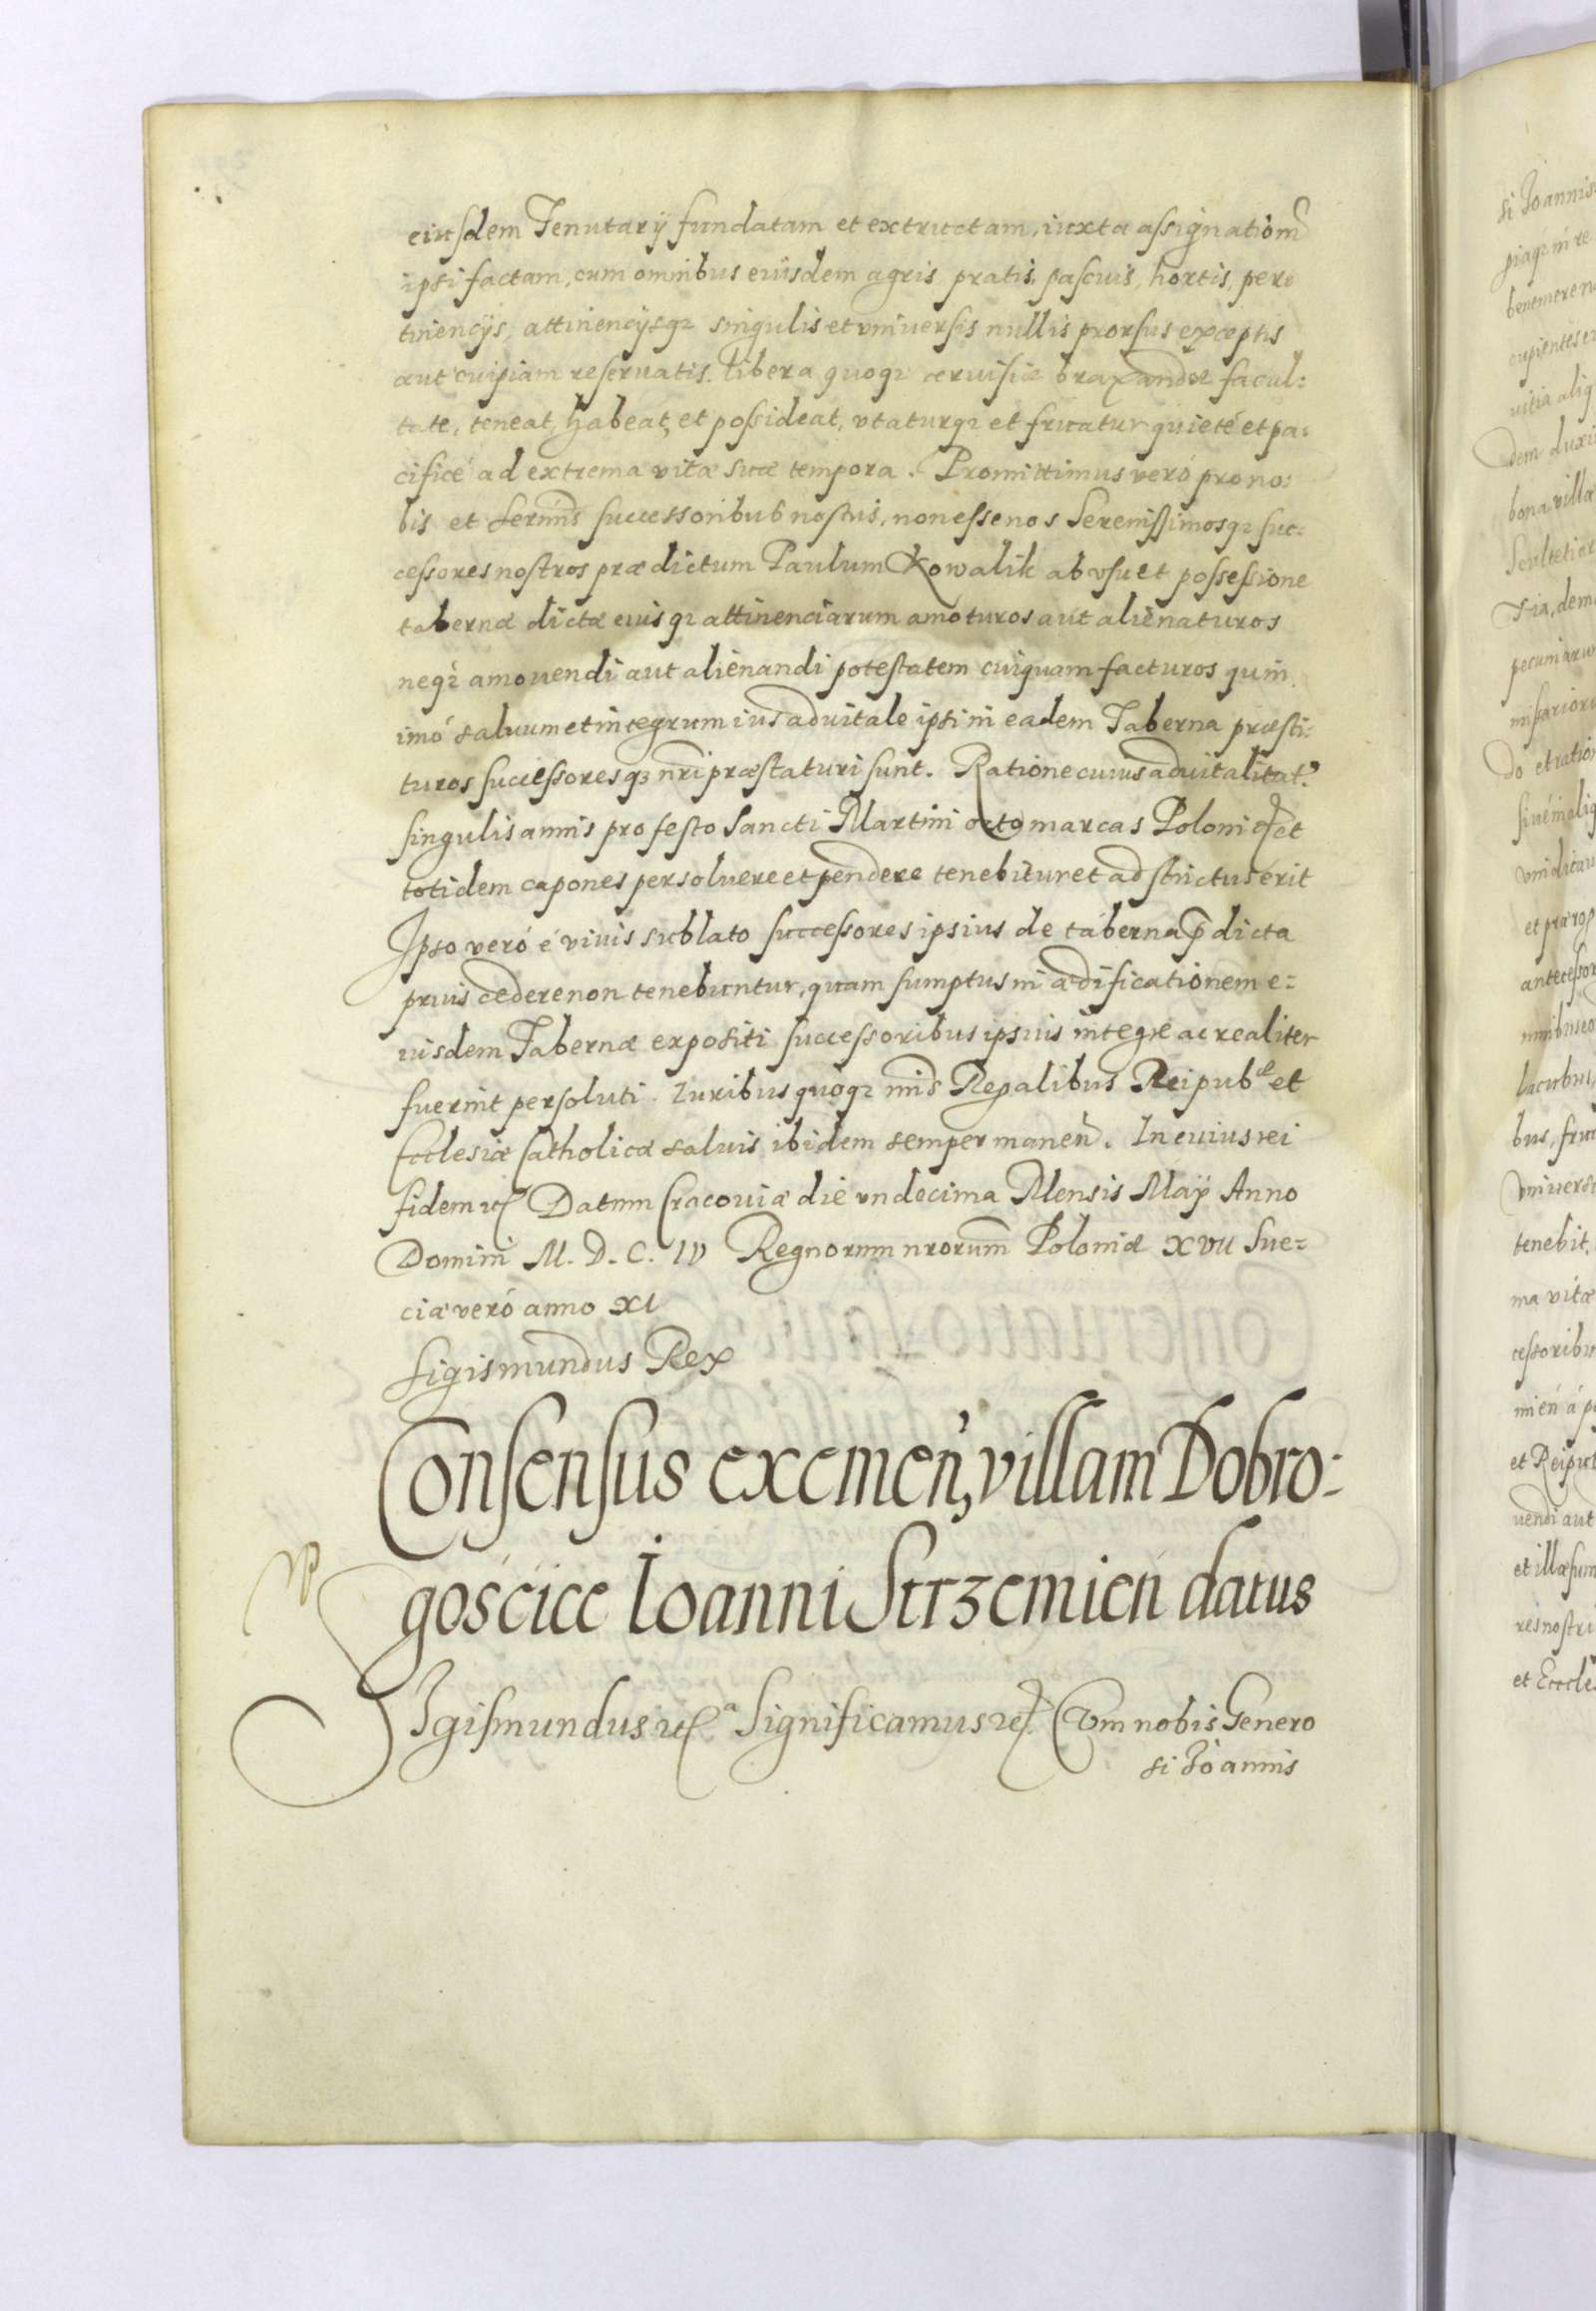 eiusdem Tenutarÿ fundatam et extructam, iuxta assignationē
ipsi factam, cum omnibus eiusdem agris pratis, pascuis, hortis, per-
tinencijs, attinencijsq3 singulis et vniuersis nullis prorsus exceptis
aut cuipiam reseruatis. libera quoq3 ceruisiæ braxandæ facul:
tate, teneat, habeat, et possideat, vtaturq3 et fruatur quieté et pa:
cificé ad extrema vitæ suæ tempora. Promittimus veró pro no:
bis et Serm̄is successoribus nostris, non esse nos Serenissimosq3 suc:
cessores nostros prædictum Paulum Kowalik ab vsu et possessione
tabernæ dictæ eiusq3 attinenciarum amoturos aut alienaturos
neq3 amouendi aut alienandi potestatem cuiquam facturos quin
imó saluum et integrum ius aduitale ipsi in eadem Taberna præsti:
turos successoresq3 nr̄i præstaturi sunt. Ratione cuius aduitalitat?
singulis annis pro festo Sancti Martini octo marcas Polonic et
totidem capones persoluere et pendere tenebitur et adstrictus erit
Ipso veró é viuis sublato successores ipsius de taberna p̄dicta
prius cedere non tenebuntur, quam sumptus in ædificationem e:
iusdem Tabernæ expositi successoribus ipsius integré ac realiter
fuerint persoluti. Iuribus quoq3 nr̄is Regalibus Reipubᶜᵃᵉ et
Ecclesiæ Catholicæ saluis ibidem semper maneñ. In cuius rei
fidem etc Datum Cracouiæ die vndecima Mensis Maÿ Anno
Domini M. D. C. IV Regnorum nrorum̄ Poloniæ XVII Sue=
ciæ veró anno XI
Sigismundus Rex
Consensus exemeñ, villam Dobro-
gosćice Ioanni Strzemień datus
Sigismundus etcᵃ Significamus etc Cum nobis Genero
si Joannis